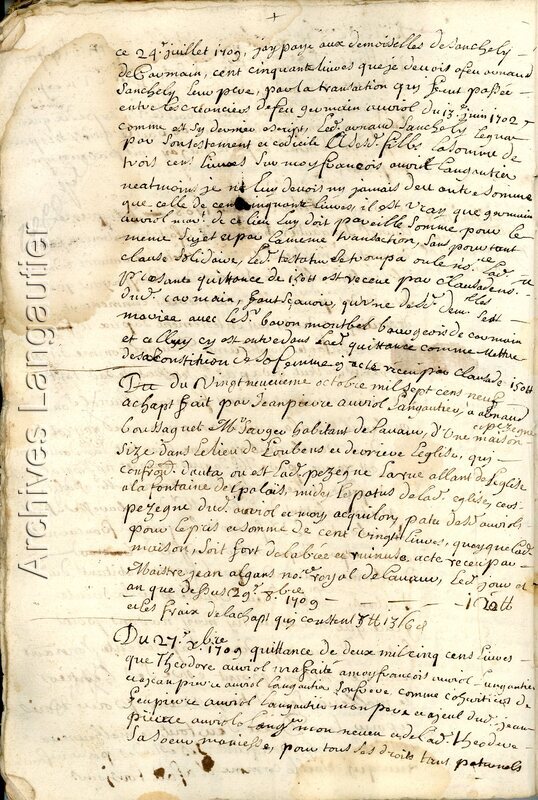 ce 24e juillet 1709, jay payé aux demoiselles de Sanchely
de Carmain, cent cinquante livres que je devois a feu arnaud
Sanchely leur pere, par la transaction qui feut passée
entre les creanciers de feu germain auriol du 13e juin 1702
comme est sy devant escript, led. arnaud Sanchely legua
par son testement et codicile a sesd. filles la somme de
trois cens livres sur moy françois auriol Langautier
neatmoins je ne luy devois ny jamais deu autre somme
que celle de cent cinquante livres, il est vray que germain
auriol de ce lieu luy doit pareille somme pour le
meme sujet et par la meme transaction, sans pourtant
clause solidaire, led. testateur se trompa
quittance de 150 ₶ est receue par
dud. carmain, faut sçavoir, qu'une desd. dem.lles sest
mariée avec led. bavon montbel bourgeois de carmain
et celluy cy est entré dans lad. quittance comme maitre
de sa constitution de sa femme 150 ₶
Du vingt neuvieme octobre mil sept cens neuf
achapt fait par Jean pierre auriol Langautier, a arnaud
boussaguet habitant de Lavaur, d'une maison
size dans le lieu de Loubens et derriere l'eglise, qui
confron. d'auta la rue allant de l'eglise
a la fontaine del palais, midy le patus de lad. eglise, cers
pezegne dud. auriol et moy, aquilon, patu desd. auriols
pour le pris et somme de cent vingt livres, quoyque lad.
maison, soit fort delabrée et ruinuse, acte receu par
Maistre jean algans no.re royal de Lavaur, led. jour et
an que dessus 29e 8.bre 1709 — 120 ₶
et les fraix de lachapt qui constent 8 ₶ 13 s 6 d
Du 27e 1709 quittance de deux mil cinq cens livres
que Theodore auriol ma faite a moy françois auriol Langautier
et a jean pierre auriol Langautier son freve comme cohéritiers de
feu pierre auriol Langautier mon pere et ayeul dud. jean
pierre auriol mon neveu et de lad. theodore
sa soeur ma niesse, pour tous ses droits tant paternels
Archives Langautier